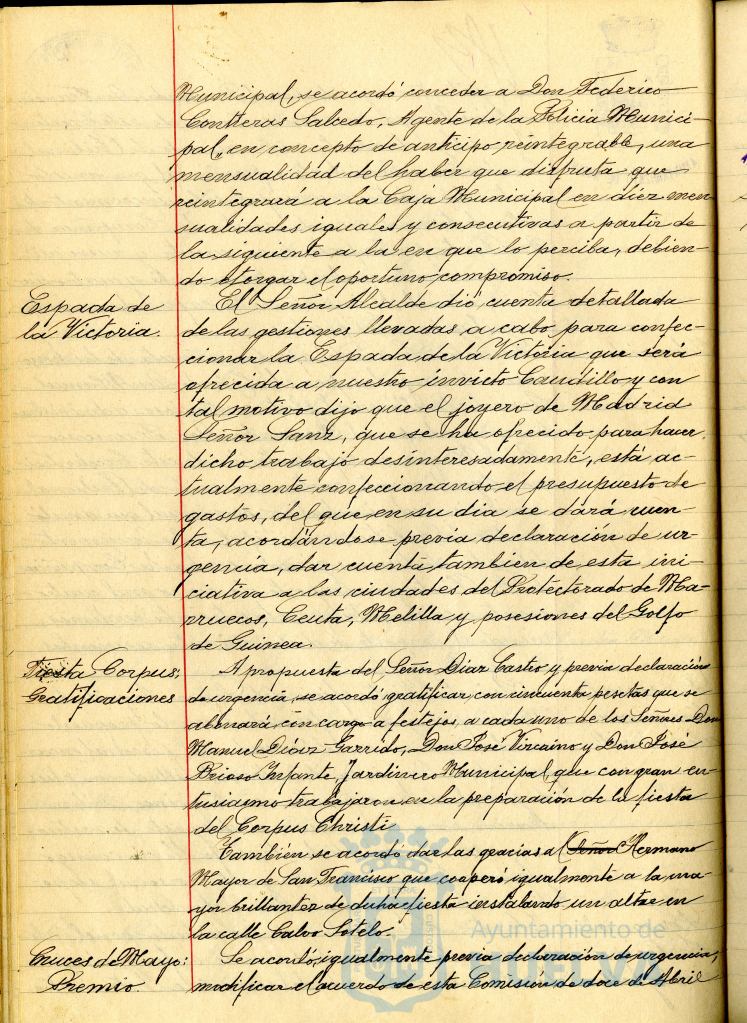 Municipal, se acordó conceder a Don Federico
Contreras Salcedo, Agente de la Policia Munici-
pal, en concepto de anticipo reintegrable, una
mensualidad del haber que disfruta que
reintegrará a la Caja Municipal en diez men
sualidades iguales y consecutivas a partir de
la siguiente a la en que lo perciba, debien-
do otorgar el oportuno compromiso.
Espada de
la Victoria.
El Señor Alcalde dió cuenta detallada
de las gestiones llevadas a cabo para confec-
cionar la Espada de la Victoria que será
ofrecida a nuestro invicto Caudillo y con
tal motivo dijo que el joyero de Madrid
Señor Sanz, que se ha ofrecido para hacer
dicho trabajo desinteresadamente, está ac-
tualmente confeccionando el presupuesto de
gastos, del que en su dia se dará cuen-
ta, acordándose previa declaración de ur-
gencia, dar cuenta tambien de esta ini-
ciativa a las ciudades del Protectorado de Ma-
rruecos, Ceuta, Melilla y posesiones del Golfo
de Guinea.
Fiesta Corpus:
Gratificaciones
A propuesta del Señor Diaz Castro y previa declaración
de urgencia se acordó gratificar con cincuenta pesetas que se
abonará con cargo a festejos, a cada uno de los Señores Don
Manuel Garrido, Don José Vizcaíno y Don José
Brioso Infante, Jardinero Municipal, que con gran en-
tusiasmo trabajaron en la preparación de la fiesta
del Corpus Christi
Tambien se acordó dar las gracias al Señor Hermano
Mayor de San Francisco que cooperó igualmente a la ma-
yor brillantez de dicha fiesta instalando un altar en
la calle Calvo Sotelo.
Cruces de Mayo:
Premio.
Se acordó, igualmente previa declaración de urgencia,
modificar el acuerdo de esta Comisión de doce de Abril
Ayuntamiento de
HUELVA